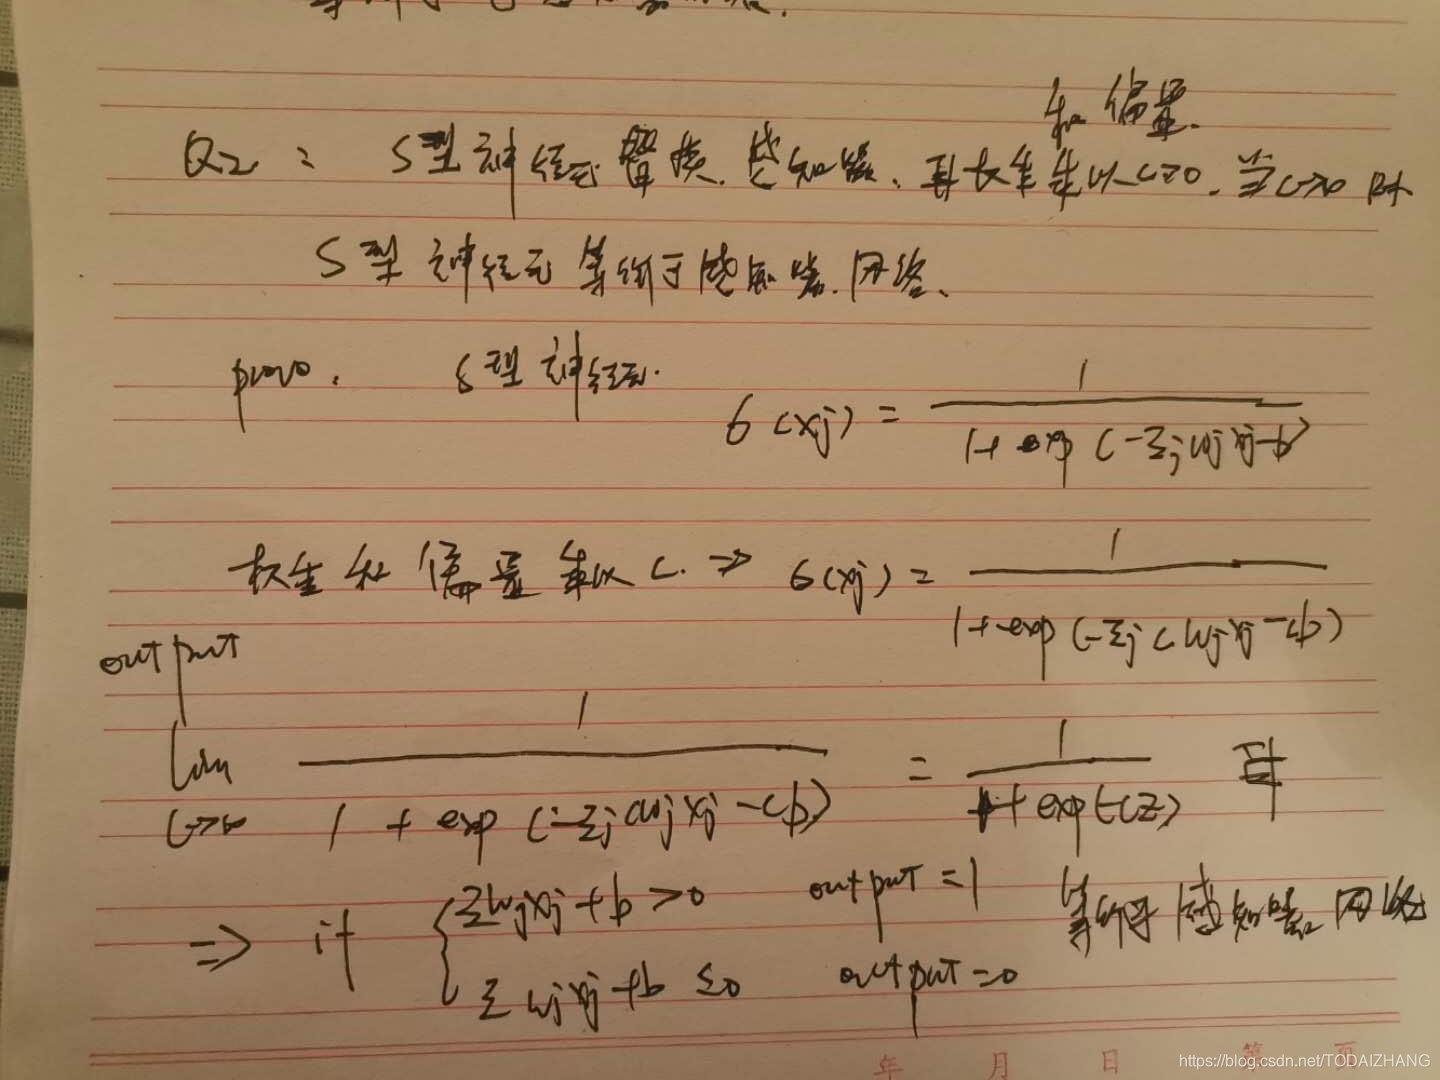 和偏置.
Q2: S型神经元替换.感知器、且权重乘以c>0.当c→∞时
S型神经元等价于感知器.网络、
prove. S型神经元.
σ(xj) = 1 / 1+exp(-Σj wj xj-b)
权重和偏置乘以c. ⇒ σ(xj) = 1 / 1+exp(-Σj c wj xj-cb)
output
lim c→∞ 1 / 1+exp(-Σj cwj xj-cb) = 1 / 1+exp(-cz) 且
⇒ if { Σwjxj+b>0 output=1 等价于感知器网络
Σ wjxj+b ≤0 output=0
年 月 日 第 页
https://blog.csdn.net/TODAIZHANG